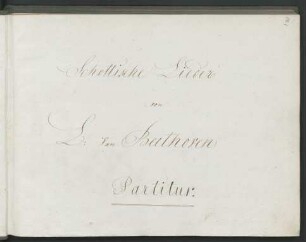 Schottische Lieder
von
L. van Beethoven
Partitur.